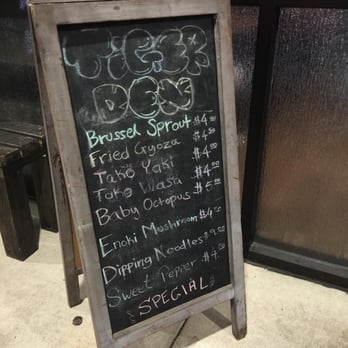 TIGER
DEN
Brussel Sprout $4.50
Fried Gyoza $4.50
Tako Yaki $4.00
Tako Wasa $4.00
Baby Octopus $5.00
Enoki Mushroom $4.50
Dipping Noodles $9.00
Sweet Pepper $4.50
SPECIAL